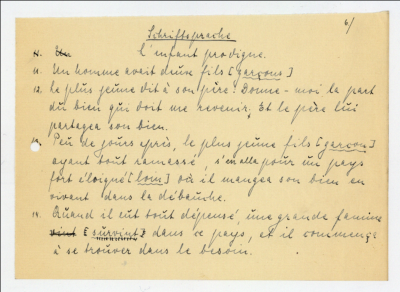 6/
Schriftsprache
l'enfant prodigue.
11. Un homme avait deux fils [garçons]
12. Le plus jeune dit à son père: Donne-moi la part
du bien qui doit me revenir. Et le père lui
partagea son bien.
13. Peu de jours après, le plus jeune fils [garçon]
ayant tout ramassé, s'en alla pour un pays
fort éloigné [loin] où il mangea son bien en
vivant dans la débauche.
14. Quand il eut tout dépensé, une grande famine
vint [survint] dans ce pays, et il commença
à se trouver dans le besoin.